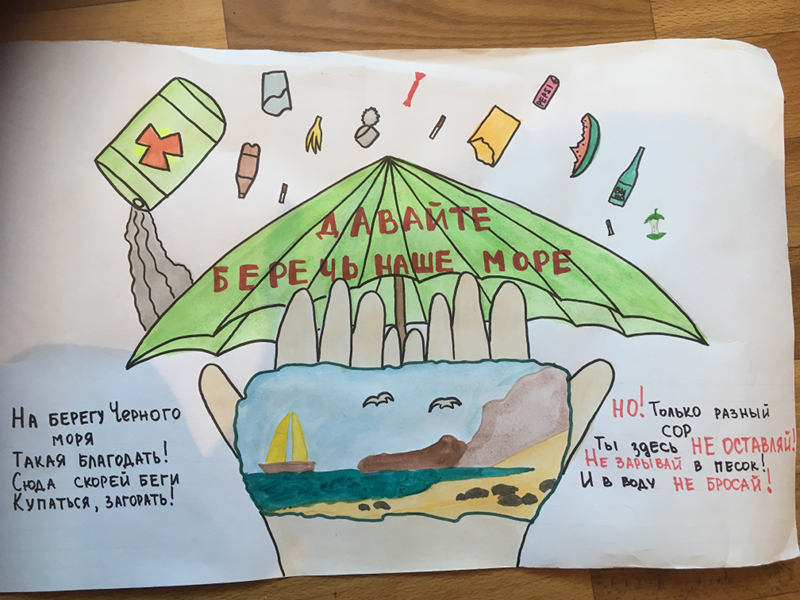 PEPSI
ДАВАЙТЕ
БЕРЕЧЬ НАШЕ МОРЕ
НА БЕРЕГУ ЧЕРНОГО
МОРЯ
ТАКАЯ БЛАГОДАТЬ!
СЮДА СКОРЕЙ БЕГИ
КУПАТЬСЯ, ЗАГОРАТЬ!
НО! ТОЛЬКО РАЗНЫЙ
СОР
ТЫ ЗДЕСЬ НЕ ОСТАВЛЯЙ!
НЕ ЗАРЫВАЙ В ПЕСОК!
И В ВОДУ НЕ БРОСАЙ!